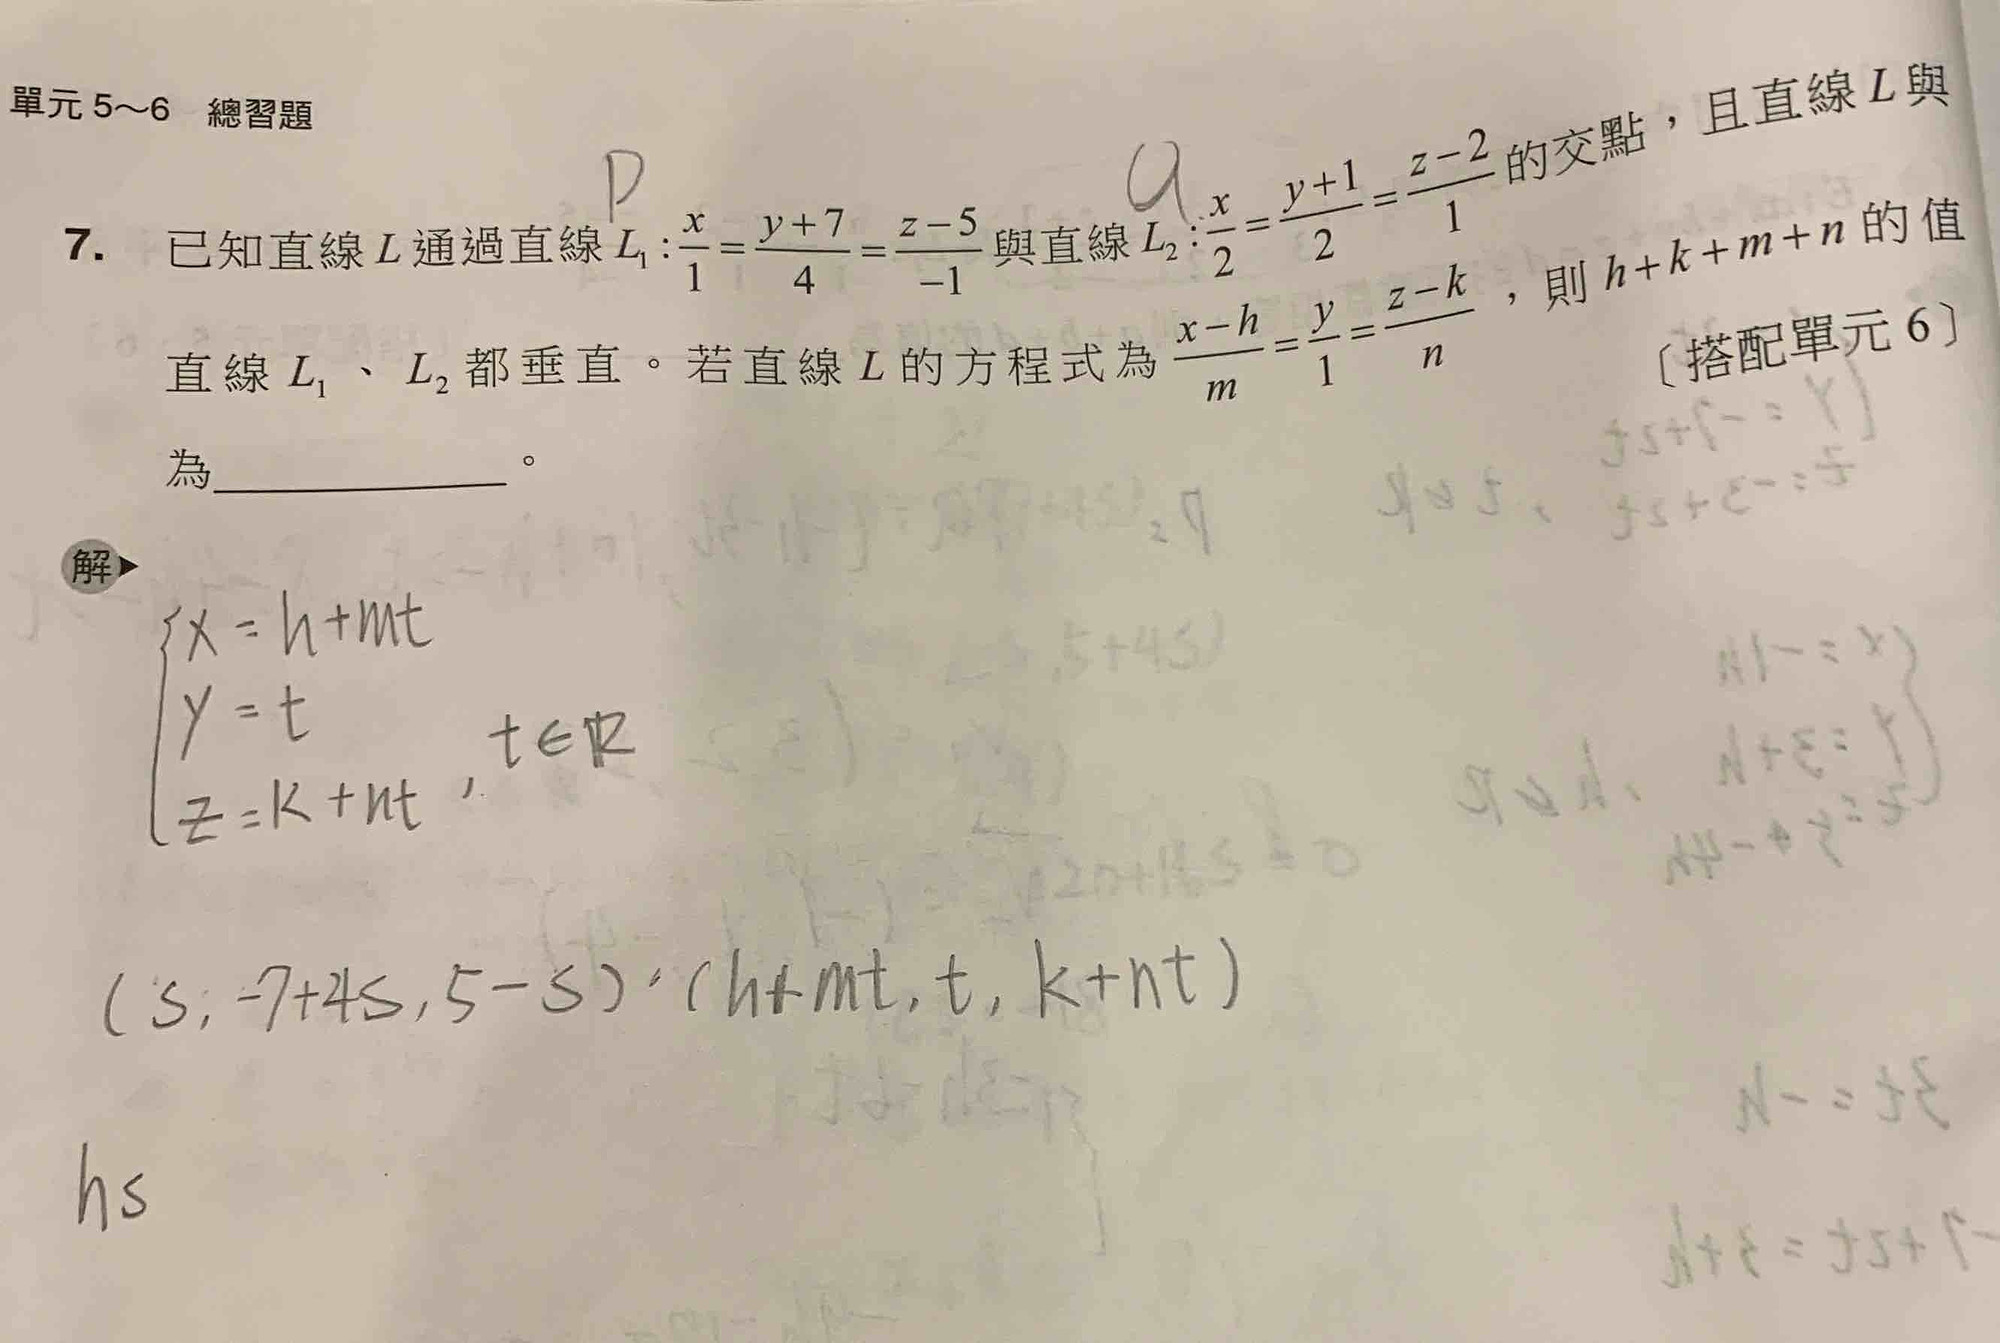 單元 5～6 總習題
P Q
7. 已知直線 L 通過直線 L₁ : x/1 = (y+7)/4 = (z−5)/−1 與直線 L₂ : x/2 = (y+1)/2 = (z−2)/1 的交點，且直線 L 與
直線 L₁、L₂ 都垂直。若直線 L 的方程式為 (x−h)/m = y/1 = (z−k)/n，則 h+k+m+n 的值
為＿＿＿＿＿＿。 〔搭配單元 6〕
解
x = h+mt
y = t
z = k+nt , t∈R
(s, -7+4s, 5-s)·(h+mt, t, k+nt)
hs